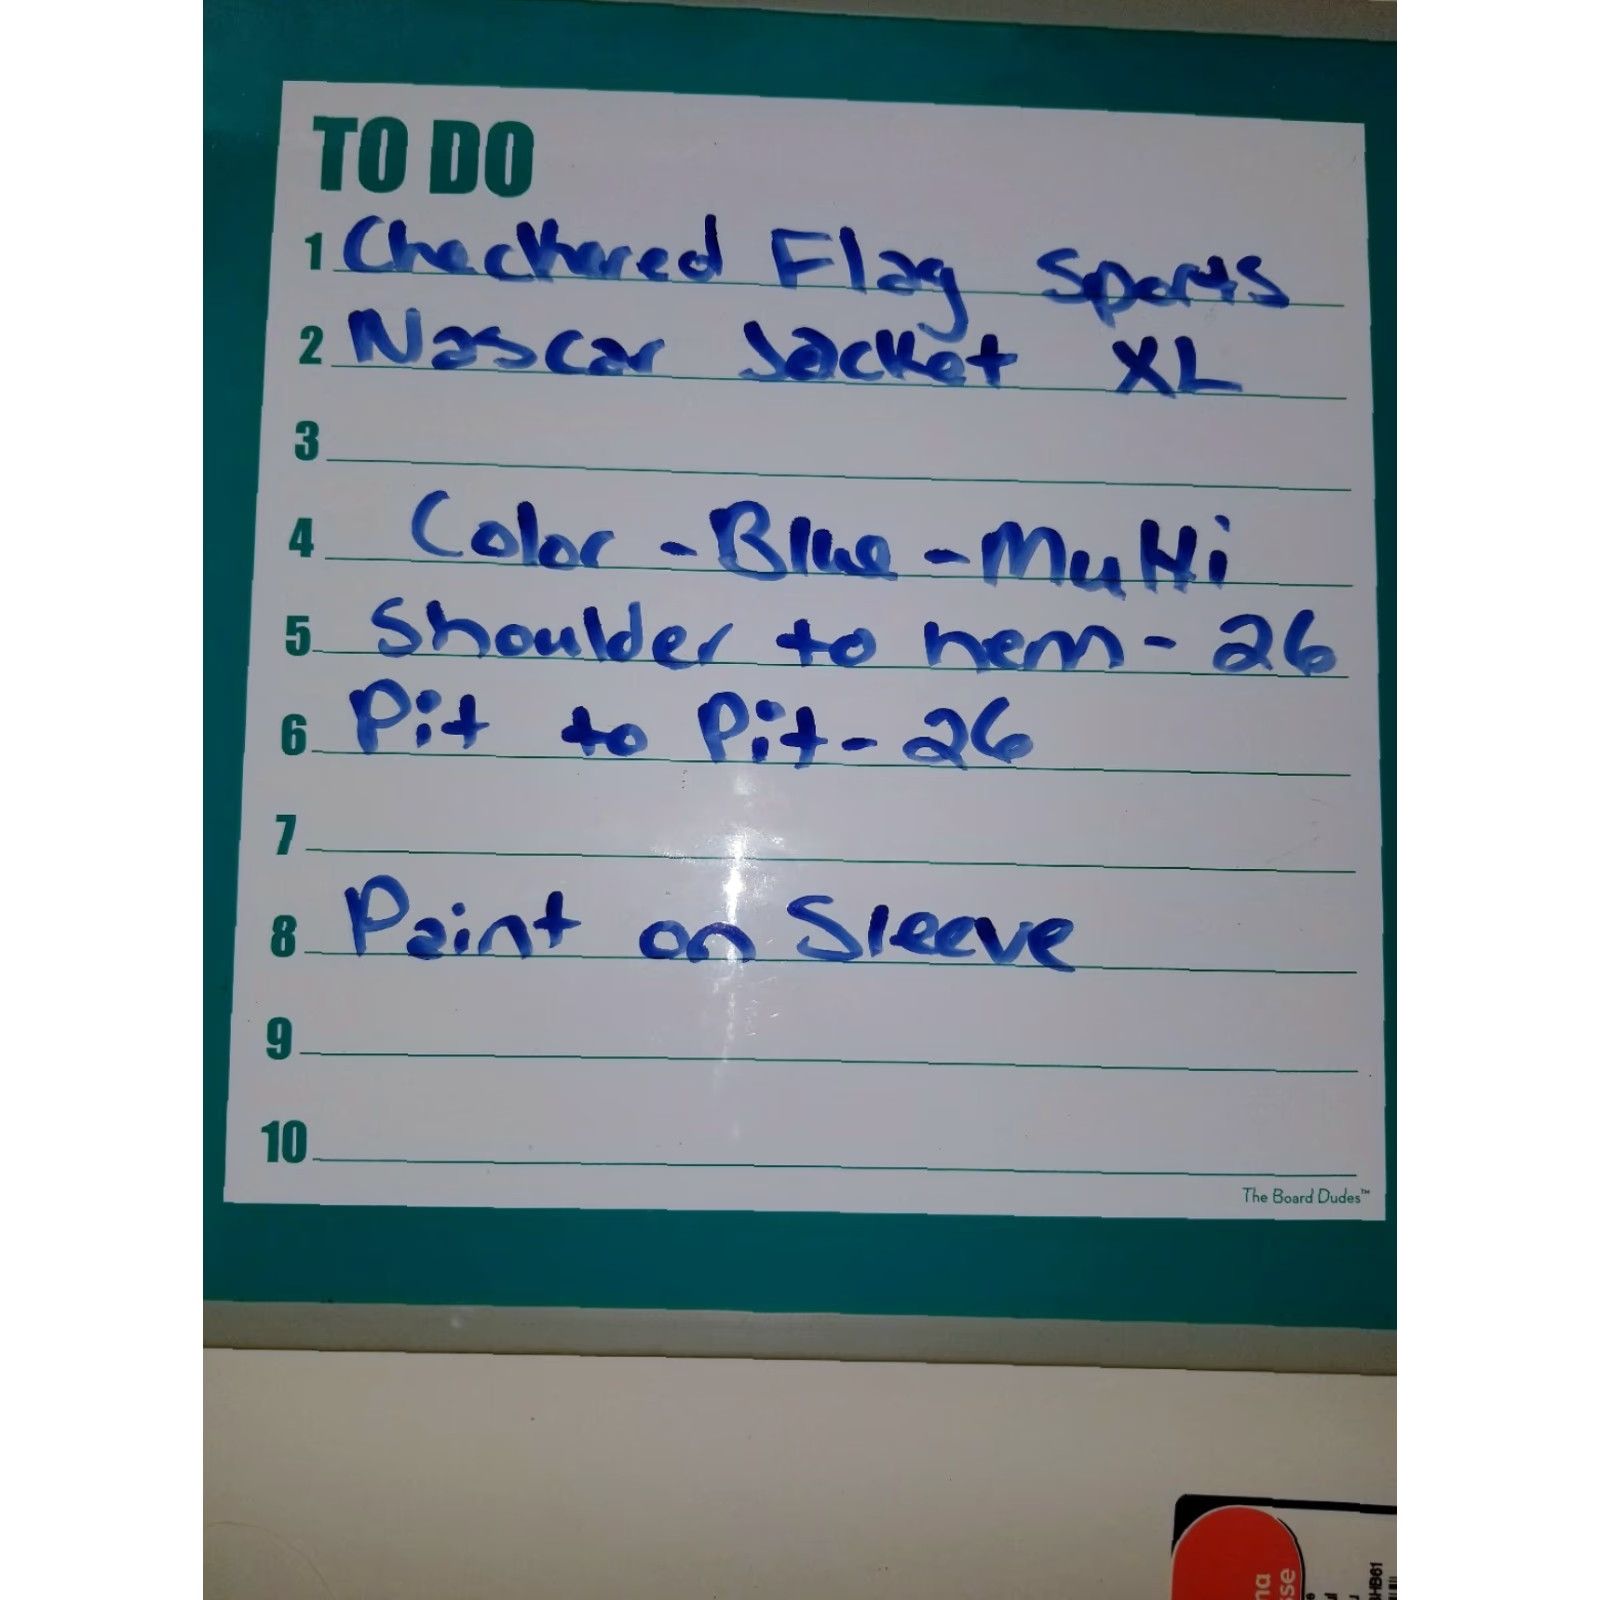 TO DO
1 Checkered Flag Sports
2 Nascar Jacket XL
3
4 Color - Blue - Multi
5 Shoulder to hem - 26
6 Pit to Pit - 26
7
8 Paint on Sleeve
9
10
The Board Dudes™